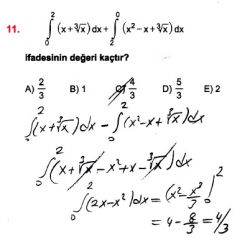 11. ∫₀² (x+³√x) dx + ∫₂⁰ (x²-x+³√x) dx
ifadesinin değeri kaçtır?
A) 2/3 B) 1 C) 4/3 D) 5/3 E) 2
∫₀² (x+³√x) dx - ∫₀² (x²-x+³√x) dx
∫₀² (x+³√x-x²+x-³√x) dx
∫₀² (2x-x²) dx = (x²-x³/3 |₀²
= 4-8/3 = 4/3